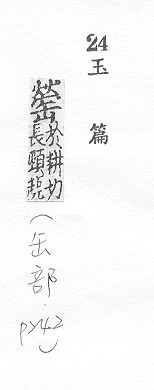 24
玉篇
罃於耕切長頸瓶
(缶部.
P242)